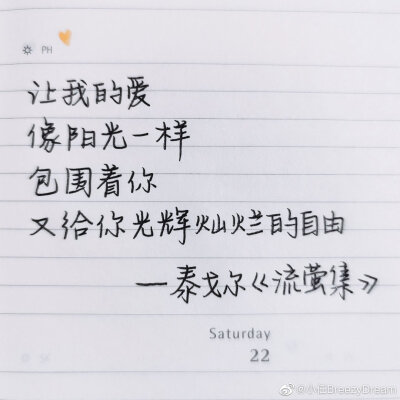 PH
让我的爱
像阳光一样
包围着你
又给你光辉灿烂的自由
—泰戈尔《流萤集》
Saturday
22
@小恒BreezyDream